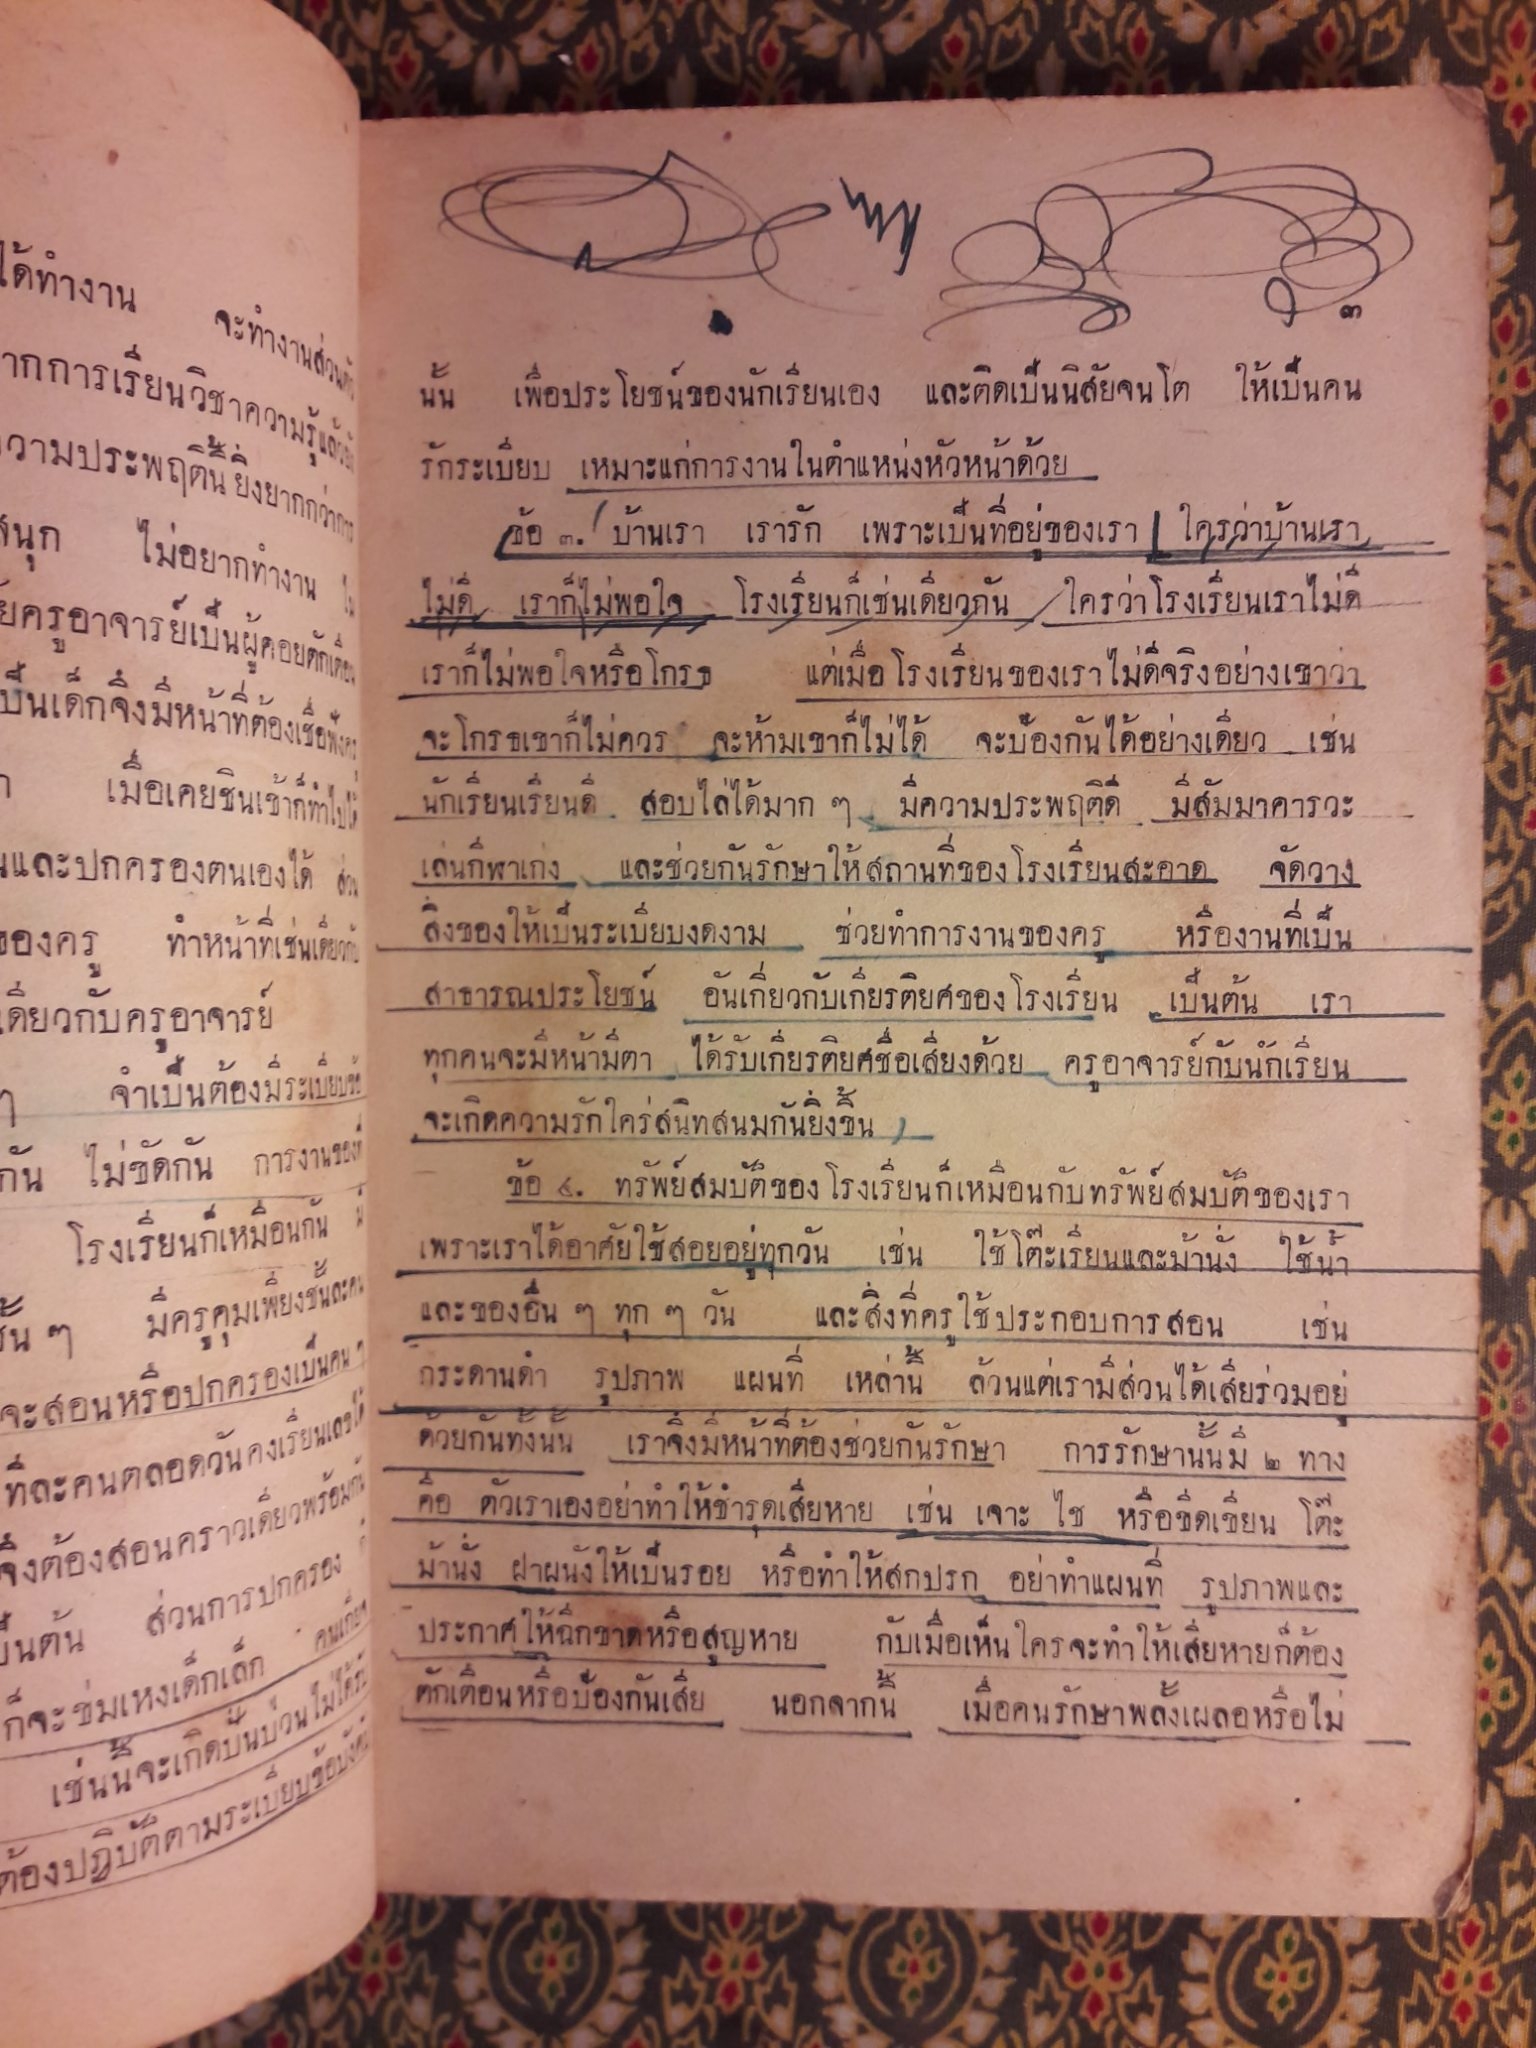 ได้ทำงาน จะทำงานส่วนตัว
ากการเรียนวิชาความรู้แล้วยัง
ความประพฤตินี้ยิ่งยากกว่าการ
สนุก ไม่อยากทำงาน ไม่
ัยครูอาจารย์เป็นผู้คอยตักเตือน
เป็นเด็กจึงมีหน้าที่ต้องเชื่อฟังครู
า เมื่อเคยชินเข้าก็ทำไปได้
นและปกครองตนเองได้ ส่วน
ของครู ทำหน้าที่เช่นเดียวกับ
เดียวกับครูอาจารย์
ๆ จำเป็นต้องมีระเบียบข้อ
กัน ไม่ขัดกัน การงานของที่
โรงเรียนก็เหมือนกัน มี
ชั้น ๆ มีครูคุมเพียงชั้นละคน
จะสอนหรือปกครองเป็นคน ๆ
ทีละคนตลอดวันคงเรียนเลขได้
จึงต้องสอนคราวเดียวพร้อมกัน
เป็นต้น ส่วนการปกครอง
ก็จะข่มเหงเด็กเล็ก คนเกียจ
เช่นนี้จะเกิดปั่นป่วนไม่ได้รับ
ต้องปฏิบัติตามระเบียบข้อบังคับ
๓
นั้น เพื่อประโยชน์ของนักเรียนเอง และติดเป็นนิสัยจนโต ให้เป็นคน
รักระเบียบ เหมาะแก่การงานในตำแหน่งหัวหน้าด้วย
ข้อ ๓. บ้านเรา เรารัก เพราะเป็นที่อยู่ของเรา ใครว่าบ้านเรา
ไม่ดี เราก็ไม่พอใจ โรงเรียนก็เช่นเดียวกัน ใครว่าโรงเรียนเราไม่ดี
เราก็ไม่พอใจหรือโกรธ แต่เมื่อโรงเรียนของเราไม่ดีจริงอย่างเขาว่า
จะโกรธเขาก็ไม่ควร จะห้ามเขาก็ไม่ได้ จะป้องกันได้อย่างเดียว เช่น
นักเรียนเรียนดี สอบไล่ได้มาก ๆ มีความประพฤติดี มีสัมมาคารวะ
เล่นกีฬาเก่ง และช่วยกันรักษาให้สถานที่ของโรงเรียนสะอาด จัดวาง
สิ่งของให้เป็นระเบียบงดงาม ช่วยทำการงานของครู หรืองานที่เป็น
สาธารณประโยชน์ อันเกี่ยวกับเกียรติยศของโรงเรียน เป็นต้น เรา
ทุกคนจะมีหน้ามีตา ได้รับเกียรติยศชื่อเสียงด้วย ครูอาจารย์กับนักเรียน
จะเกิดความรักใคร่สนิทสนมกันยิ่งขึ้น
ข้อ ๔. ทรัพย์สมบัติของโรงเรียนก็เหมือนกับทรัพย์สมบัติของเรา
เพราะเราได้อาศัยใช้สอยอยู่ทุกวัน เช่น ใช้โต๊ะเรียนและม้านั่ง ใช้น้ำ
และของอื่น ๆ ทุก ๆ วัน และสิ่งที่ครูใช้ประกอบการสอน เช่น
กระดานดำ รูปภาพ แผนที่ เหล่านี้ ล้วนแต่เรามีส่วนได้เสียร่วมอยู่
ด้วยกันทั้งนั้น เราจึงมีหน้าที่ต้องช่วยกันรักษา การรักษานั้นมี ๒ ทาง
คือ ตัวเราเองอย่าทำให้ชำรุดเสียหาย เช่น เจาะ ไช หรือขีดเขียน โต๊ะ
ม้านั่ง ฝาผนังให้เป็นรอย หรือทำให้สกปรก อย่าทำแผนที่ รูปภาพและ
ประกาศให้ฉีกขาดหรือสูญหาย กับเมื่อเห็นใครจะทำให้เสียหายก็ต้อง
ตักเตือนหรือป้องกันเสีย นอกจากนี้ เมื่อคนรักษาพลั้งเผลอหรือไม่